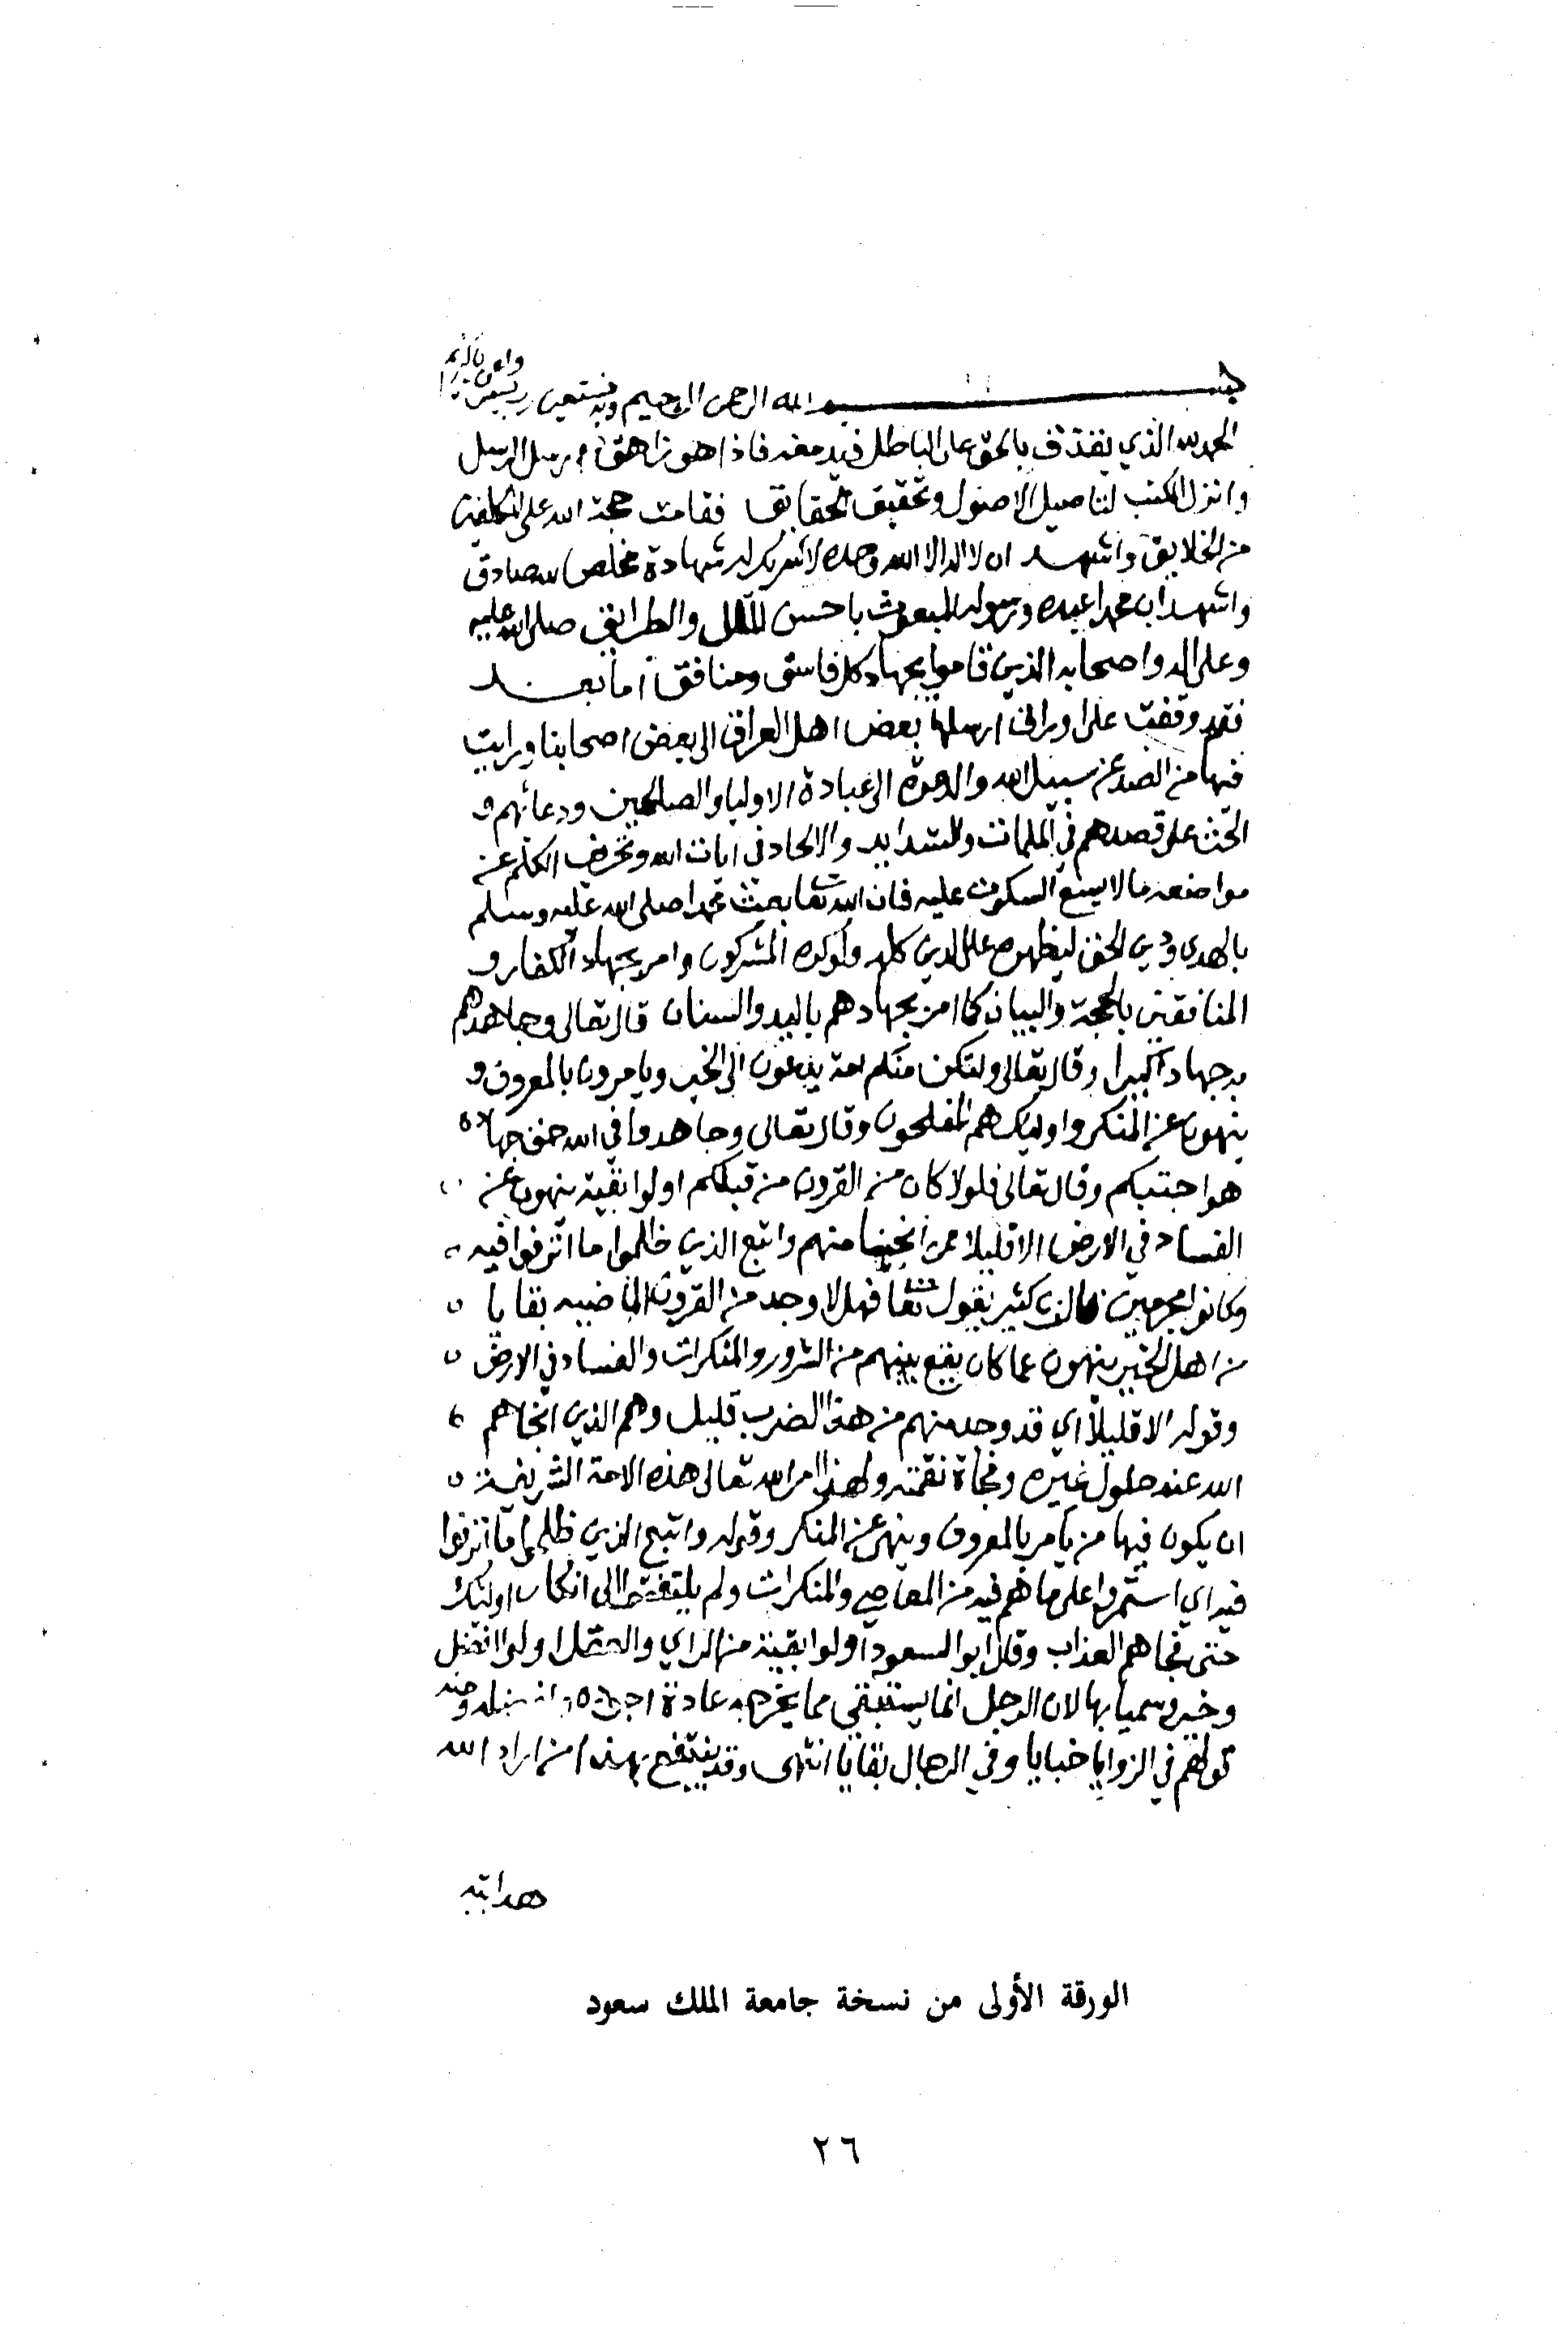 بسم الله الرحمن الرحيم وبه نستعين رب يسر واعن يا كريم
الحمد لله الذي يقذف بالحق على الباطل فيدمغه فاذا هو زاهق ارسل الرسل
وانزل الكتب لتاصيل الاصول وتحقيق الحقايق فقامت حجة الله على المكلفين
من الخلايق واشهد ان لا اله الا الله وحده لا شريك له شهادة مخلص لله صادق
واشهد ان محمدا عبده ورسوله المبعوث باحسن الملل والطرائق صلى الله عليه
وعلى اله واصحابه الذين قاموا بجهاد كل فاسق ومنافق اما بعد
فقد وقفت على اوراق ارسلها بعض اهل العراق الى بعض اصحابنا ورايت
فيها من الصد عن سبيل الله والدعوة الى عبادة الاوليا والصالحين ودعائهم و
الحث على قصدهم في الملمات والشدايد والالحاد في ايات الله وتحريف الكلم عن
مواضعه ما لا يسع السكوت عليه فان الله تعا بعث محمدا صلى الله عليه وسلم
بالهدى ودين الحق ليظهره على الدين كله ولو كره المشركون وامر بجهاد الكفار و
المنافقين بالحجة والبيان كما امر بجهادهم باليد والسنان قال تعالى وجاهدهم
به جهادا كبيرا وقال تعالى ولتكن منكم امة يدعون الى الخير ويامرون بالمعروف و
ينهون عن المنكر واوليك هم المفلحون وقال تعالى وجاهدوا في الله حق جهاده
هو اجتبكم وقال تعالى فلولا كان من القرون من قبلكم اولوا بقية ينهون عن
الفساد في الارض الا قليلا ممن انجينا منهم واتبع الذين ظلموا ما اترفوا فيه
وكانوا مجرمين قال ابن كثير يقول تعا فهلا وجد من القرون الماضيه بقايا
من اهل الخير ينهون عما كان يقع بينهم من الشرور والمنكرات والفساد في الارض
وقوله الا قليلا اي قد وجد منهم من هذا الضرب قليل وهم الذين انجاهم
الله عند حلول غيره وفجاة نقمته ولهذا امر الله تعالى هذه الامة الشريفة
ان يكون فيها من يأمر بالمعروف وينهى عن المنكر وقوله واتبع الذين ظلموا ما اترفوا
فيه اي استمروا على ما هم فيه من المعاصي والمنكرات ولم يلتفتوا الى انكار اولئك
حتى فجاهم العذاب وقال ابو السعود اولوا بقية من الراي والعقل اولوا فضل
وخير وسميا بها لان الرجل انما يستبقي مما يخرجه عادة اجوده وافضله ومنه
قولهم في الزوايا خبايا وفي الرجال بقايا انتهى وقد ينتفع بهذا من اراد الله
هدايته
الورقة الأولى من نسخة جامعة الملك سعود
٢٦